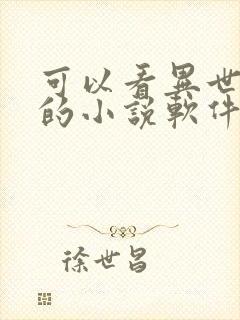 可以看異世
的小說軟件
徐世昌